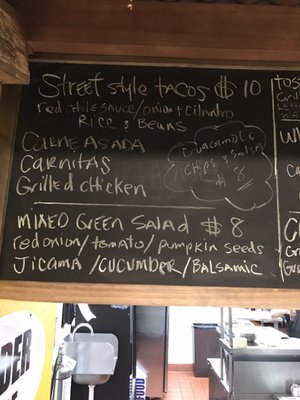 Street style tacos $10
red chile sauce/onion + cilantro
Rice & Beans
Carne asada
Carnitas
Grilled chicken
Guacamole
chips & salsa
$8
Mixed Green Salad $8
red onion/tomato/pumpkin seeds
Jicama/cucumber/Balsamic